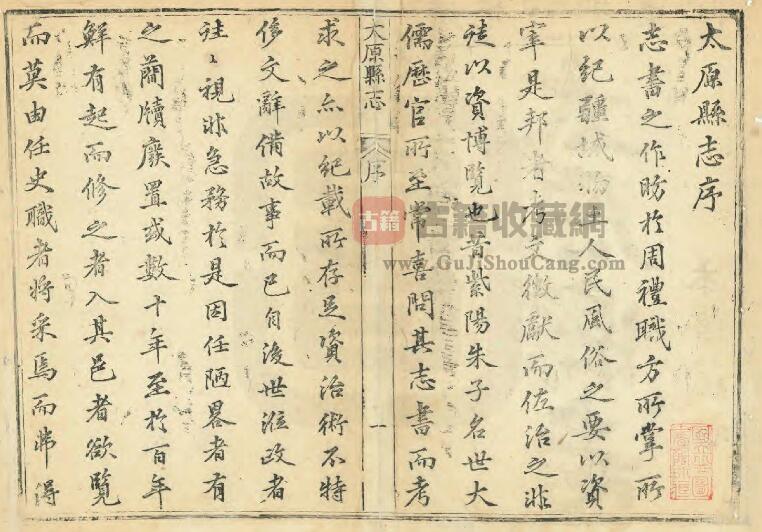 太原縣志序
志書之作昉於周禮職方所掌所
以紀疆域物土人民風俗之要以資
宰是邦者考文徵獻而佐治之非
徒以資博覽也昔紫陽朱子名世大
儒歷官所至常喜問其志書而考
太原縣志 序 一
求之亦以紀載所存足資治術不特
侈文辭備故事而已自後世涖政者
往〻視非急務於是因任陋畧者有
之蕳牘廢置或數十年至於百年
鮮有起而修之者入其邑者欲覽
而莫由任史職者將采焉而弗得
古籍 古籍收藏網
www.GuJiShouCang.com